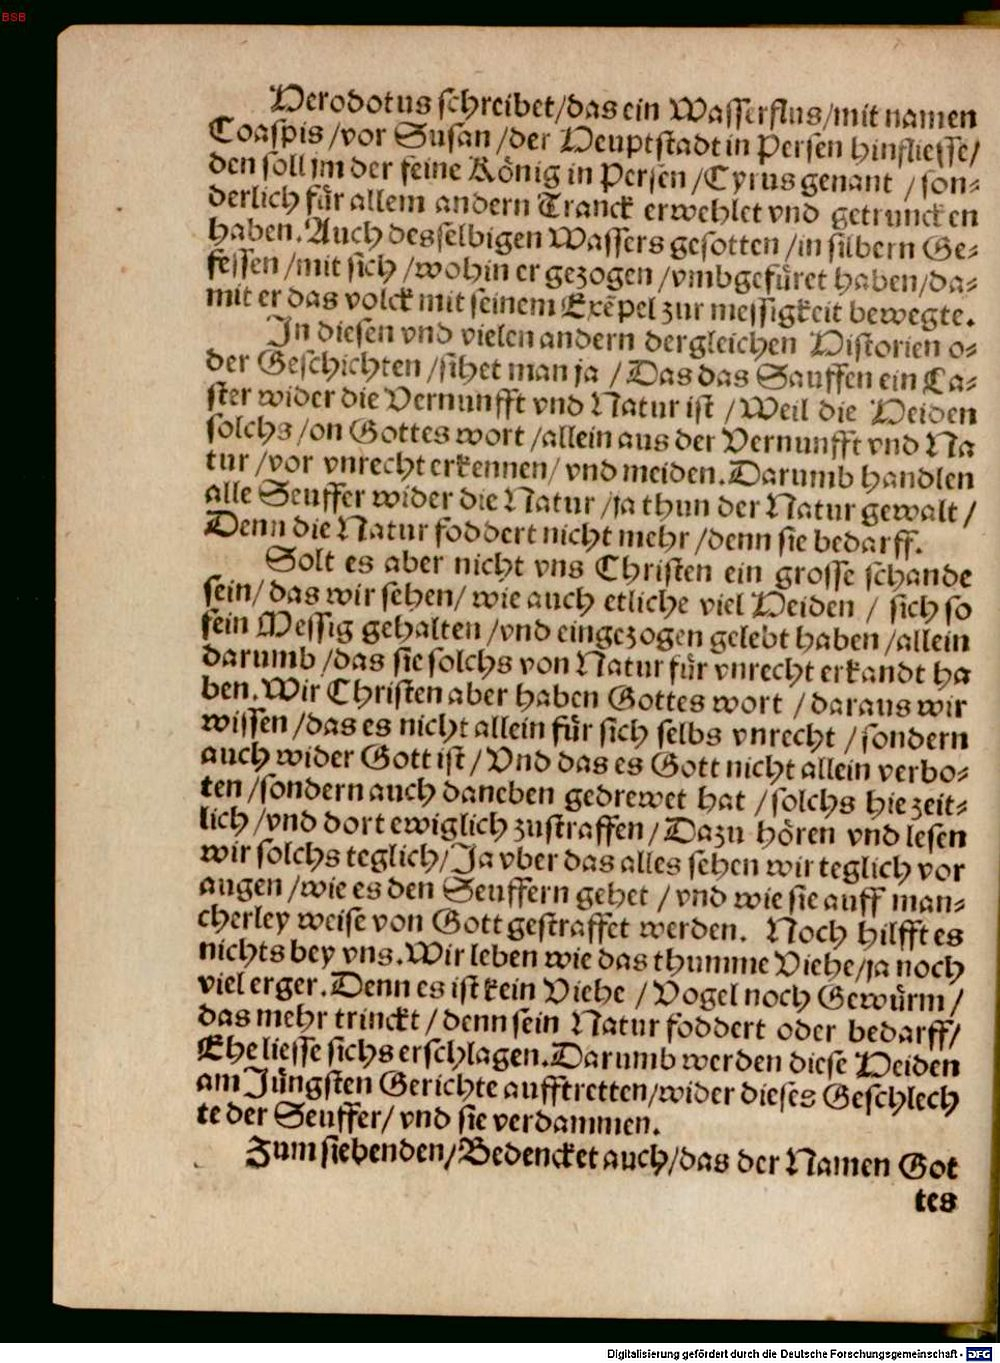 BSB
Herodotus schreibet/das ein Wasserflus/mit namen
Coaspis/vor Susan/der Heuptstadt in Persen hinfliesse/
den soll jm der feine König in Persen/Cyrus genant/son⸗
derlich für allem andern Tranck erwehlet vnd getruncken
haben. Auch desselbigen Wassers gesotten/in silbern Ge⸗
fessen/mit sich/wohin er gezogen/vmbgefüret haben/da⸗
mit er das volck mit seinem Exẽpel zur messigkeit bewegte.
In diesen vnd vielen andern dergleichen Historien o⸗
der Geschichten/sihet man ja/Das das Sauffen ein La⸗
ster wider die Vernunfft vnd Natur ist/Weil die Heiden
solchs/on Gottes wort/allein aus der Vernunfft vnd Na
tur/vor vnrecht erkennen/vnd meiden. Darumb handlen
alle Seuffer wider die Natur/ja thun der Natur gewalt/
Denn die Natur foddert nicht mehr/denn sie bedarff.
Solt es aber nicht vns Christen ein grosse schande
sein/das wir sehen/wie auch etliche viel Heiden/sich so
fein Messig gehalten/vnd eingezogen gelebt haben/allein
darumb/das sie solchs von Natur für vnrecht erkandt ha
ben. Wir Christen aber haben Gottes wort/daraus wir
wissen/das es nicht allein für sich selbs vnrecht/sondern
auch wider Gott ist/Vnd das es Gott nicht allein verbo⸗
ten/sondern auch daneben gedrewet hat/solchs hie zeit⸗
lich/vnd dort ewiglich zustraffen/Dazu hören vnd lesen
wir solchs teglich/Ja vber das alles sehen wir teglich vor
augen/wie es den Seuffern gehet/vnd wie sie auff man⸗
cherley weise von Gott gestraffet werden. Noch hilfft es
nichts bey vns. Wir leben wie das thumme Viehe/ja noch
viel erger. Denn es ist kein Viehe/Vogel noch Gewürm/
das mehr trinckt/denn sein Natur foddert oder bedarff/
Ehe liesse sichs erschlagen. Darumb werden diese Heiden
am Jüngsten Gerichte aufftretten/wider dieses Geschlech
te der Seuffer/vnd sie verdammen.
Zum siebenden/Bedencket auch/das der Namen Got
tes
Digitalisierung gefördert durch die Deutsche Forschungsgemeinschaft - DFG